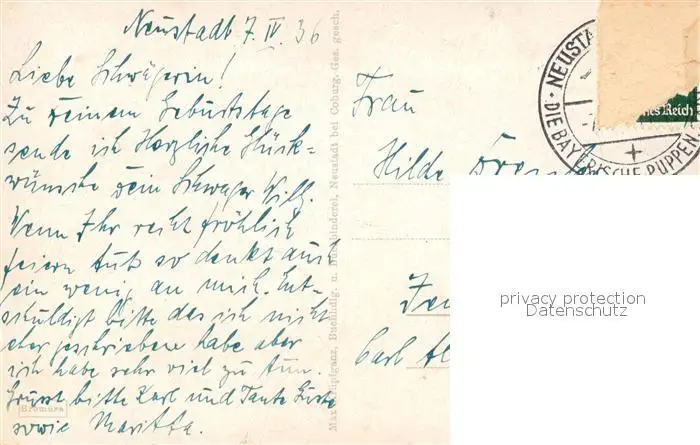 Neustadt 7. IV. 36
Liebe Schwägerin!
Zu Deinem Geburtstage
sende ich Herzliche Glück-
wünste Dein Schwager Willy.
Wenn Ihr recht fröhlich
feiern tuts so denkt auch
ein wenig an mich. Ent-
schuldigt bitte das ich nicht
eher geschrieben habe aber
ich habe sehr viel zu tun.
Grüsst bitte Karl und Tante
sowie Maritta.
Bromüra
Buchhdlg. u. Buchbinderei, Neustadt bei Coburg. Ges. gesch.
Frau
Hilde
Carl
NEUSTA
DIE BAYERISCHE PUPPEN
hes Reich
privacy protection
Datenschutz